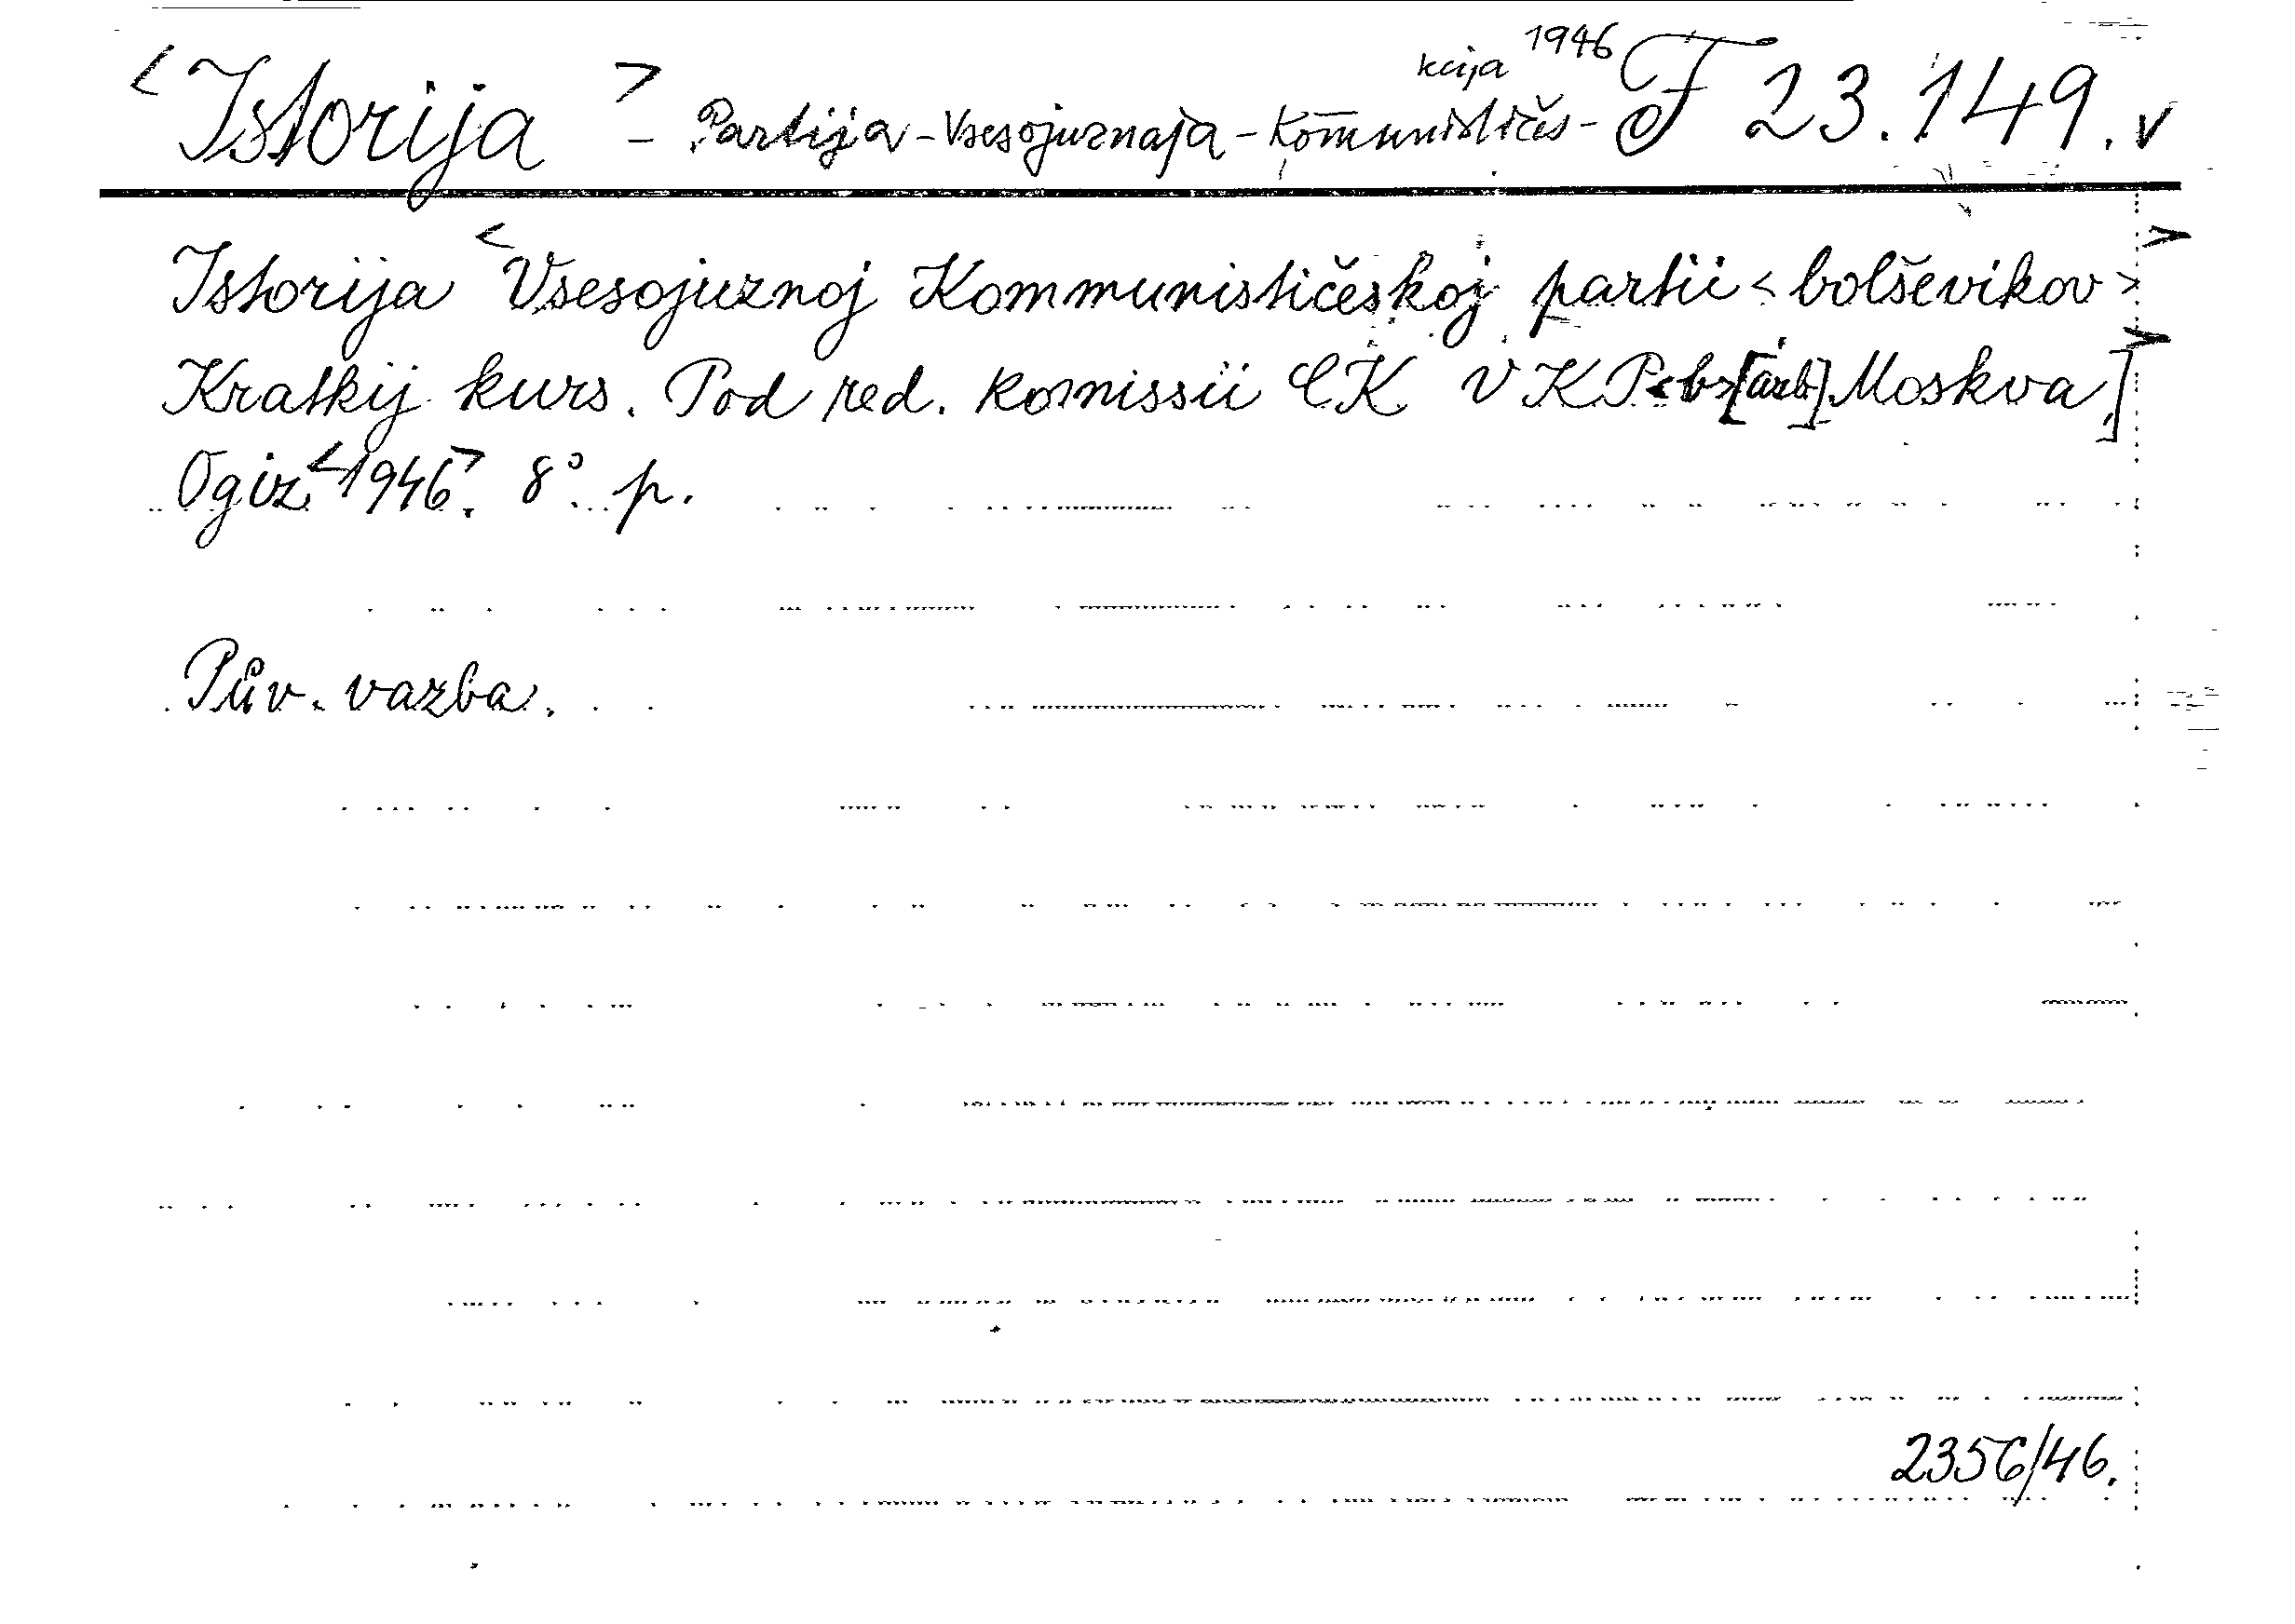 <Istorija> - Partija - Vsesojuznaja - Kom̄unističes- kaja 1946 F 23.149.v
Istorija <Vsesojuznoj Kommunističeskoj partii <bolševikov>>
Kratkij kurs. Pod red. komissii CK VKP<b> Moskva,]
Ogiz <1946>. 8°. p.
Pův. vazba.
2356/46.